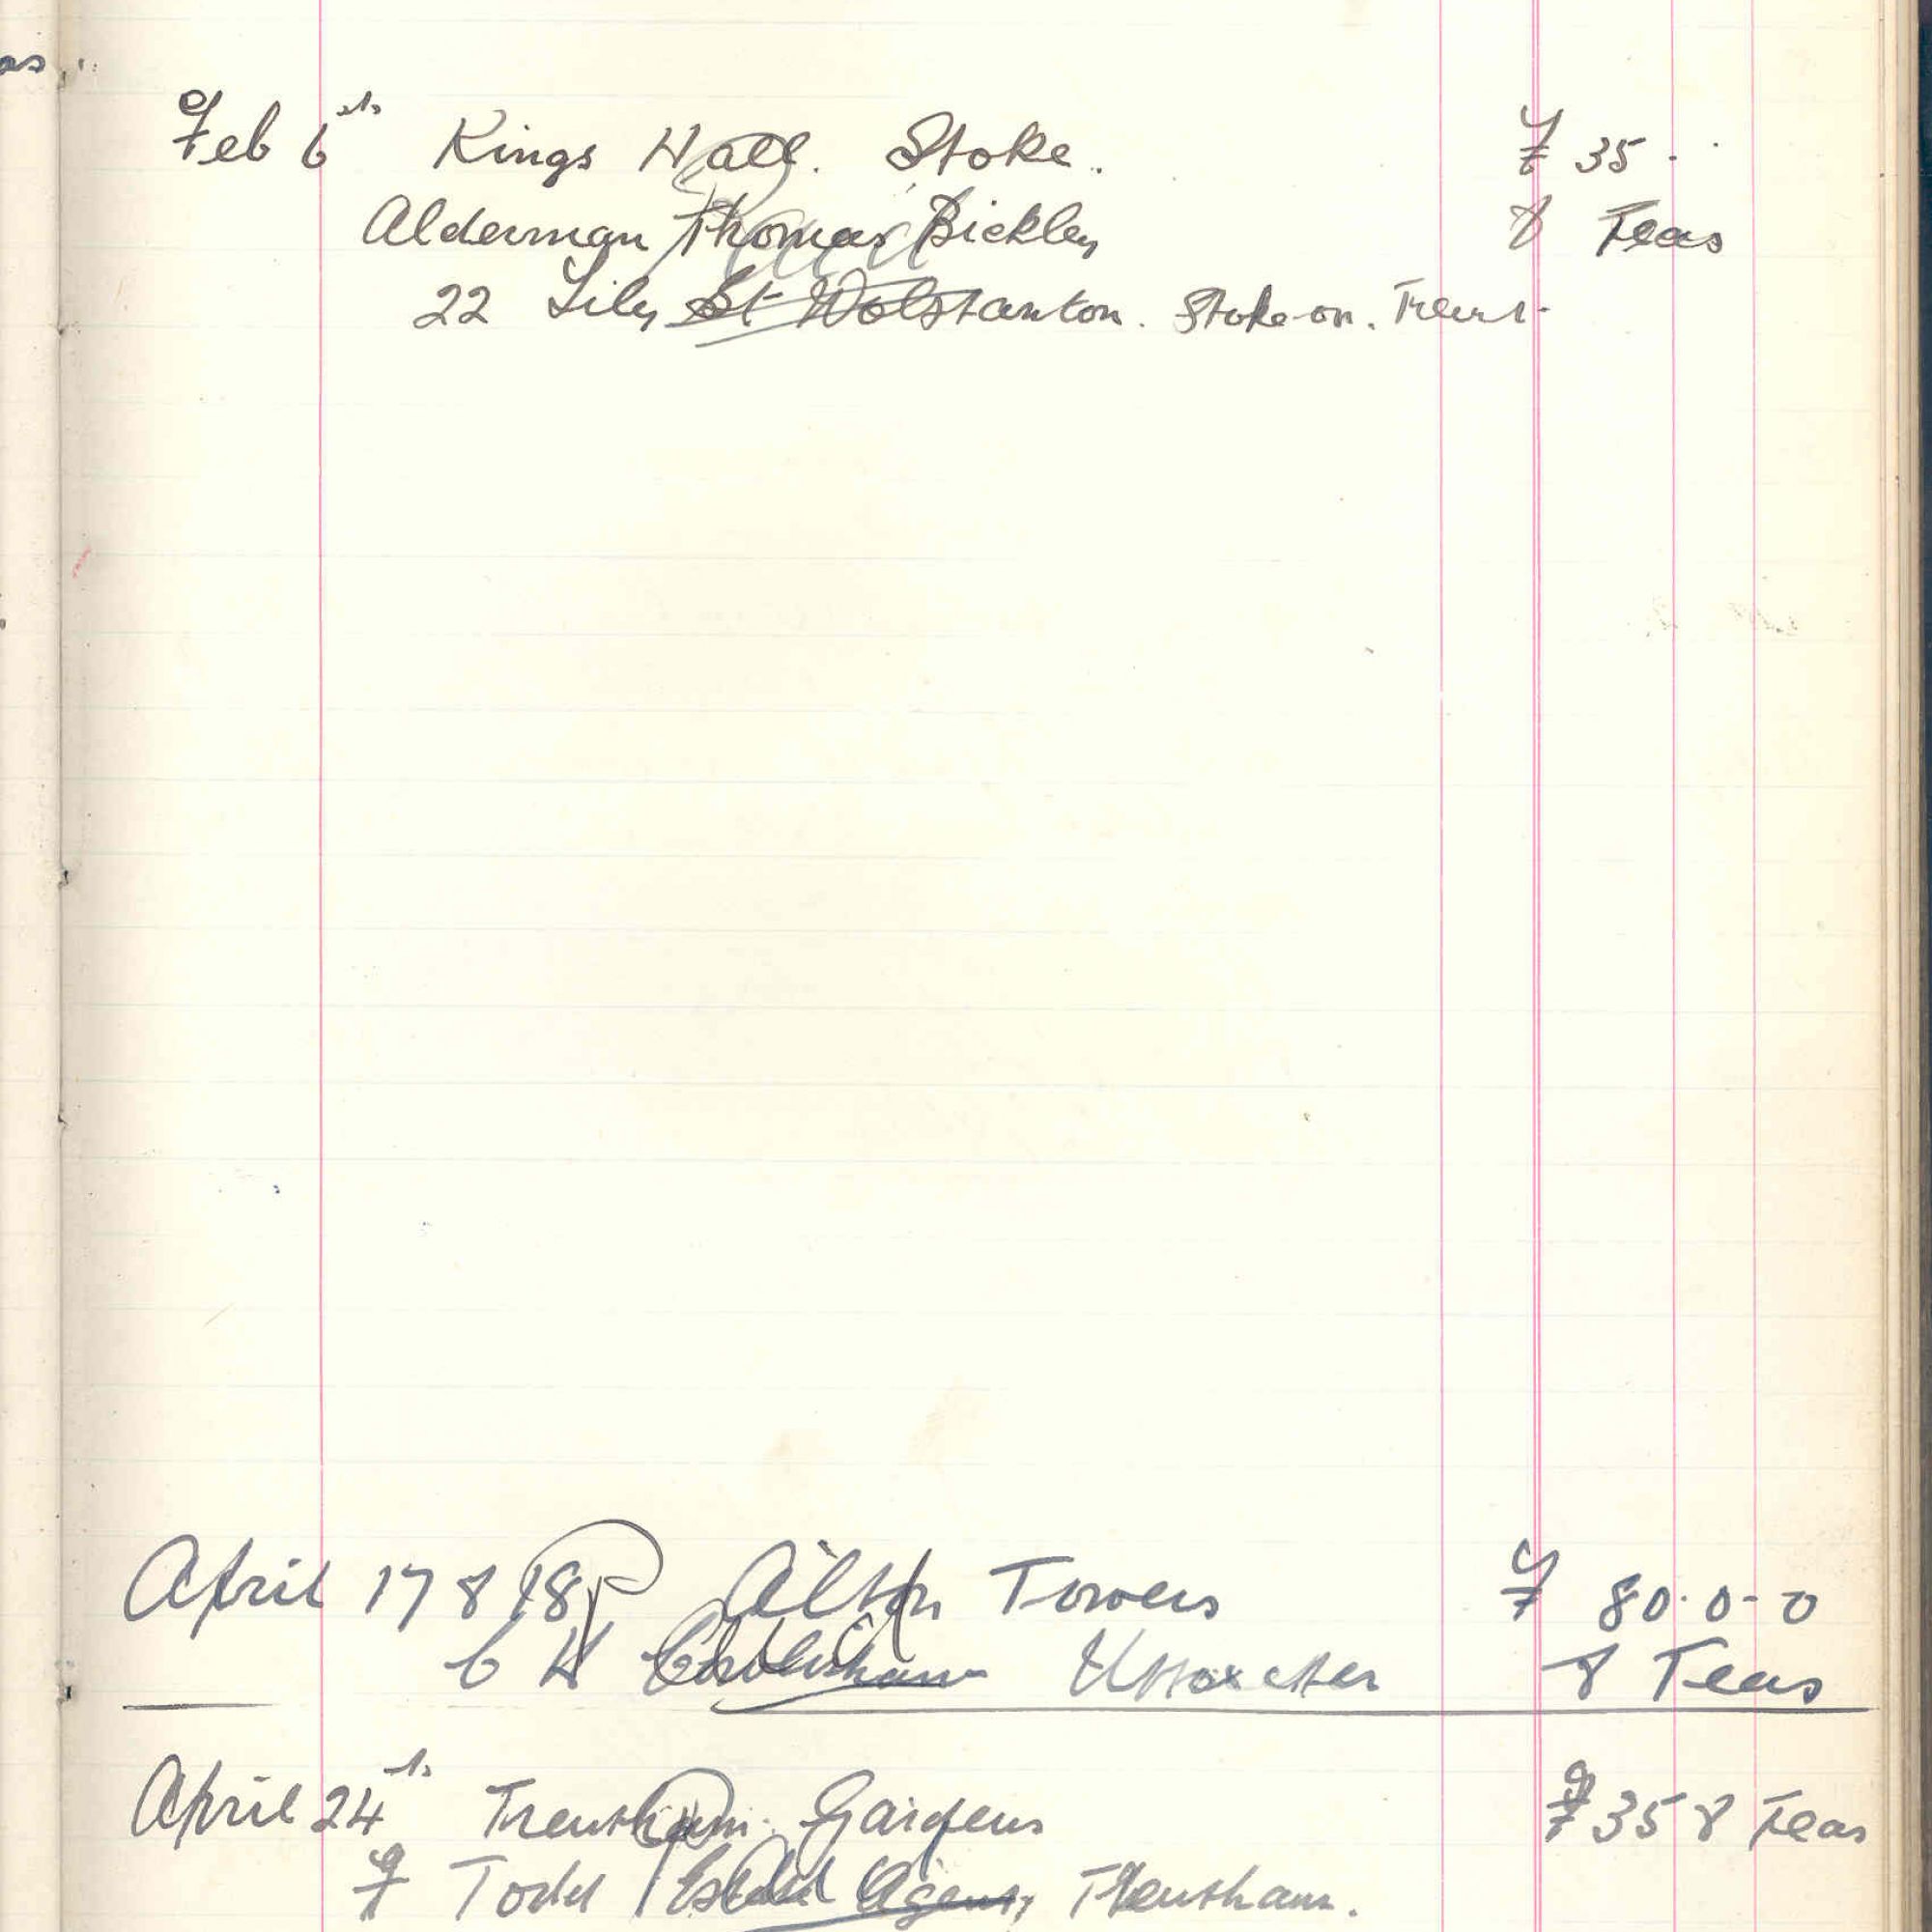 as
Feb 6th Kings Hall. Stoke. £ 35 . .
Alderman Thomas Bickley & Teas
22 Lily St Wolstanton. Stoke-on. Trent.
April 17 & 18 Alton Towers £ 80.0-0
Uttoxeter & Teas
April 24th Trentham. Gardens £ 35 & Teas
Todd Estate Agent, Trentham.